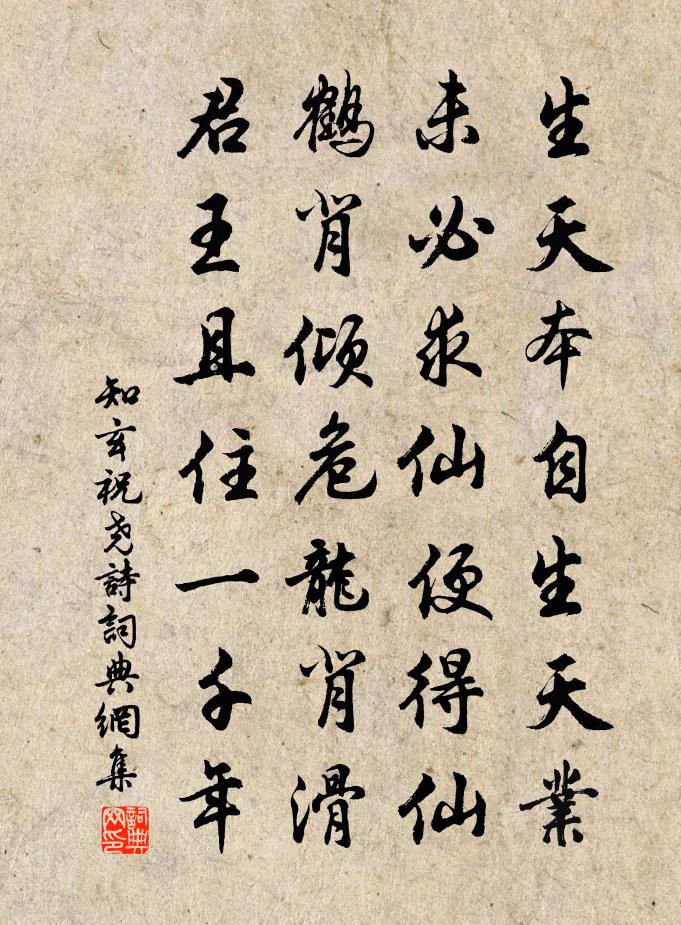 生天本自生天業
未必求仙便得仙
鶴背傾危龍背滑
君王且住一千年
知玄祝尧詩詞典網集
詞典
网印